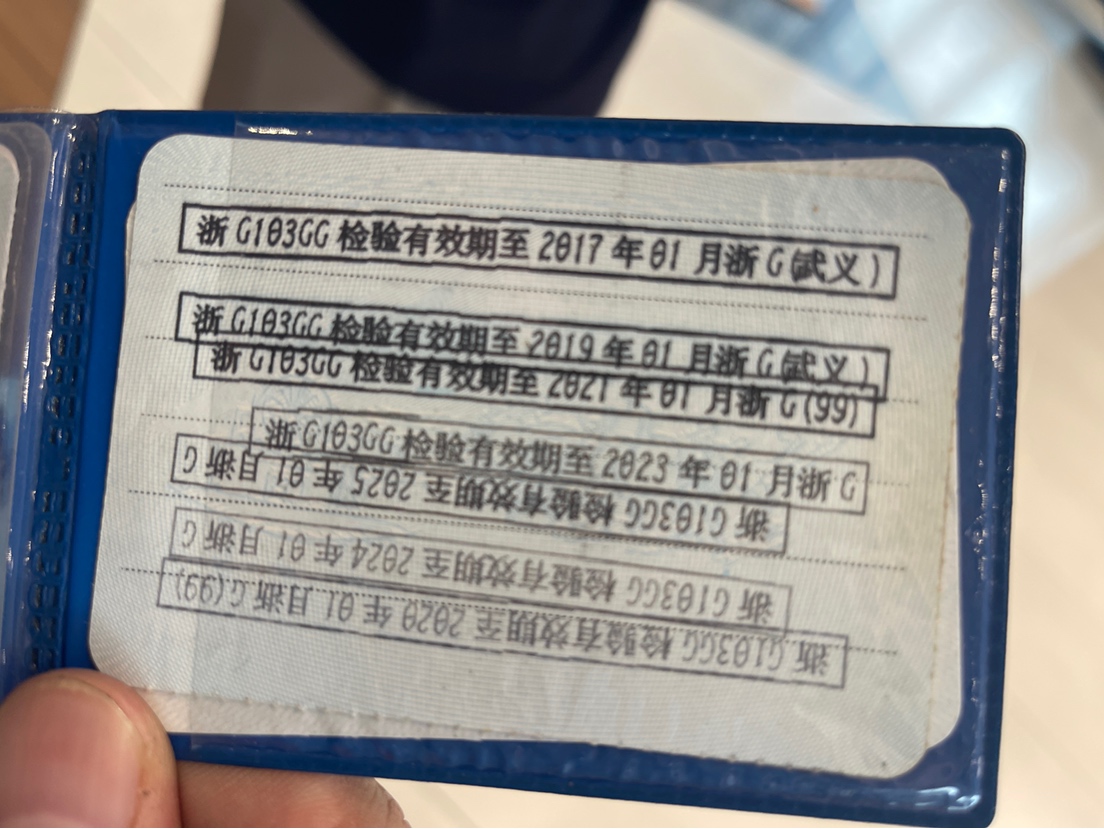 浙G103GG检验有效期至2017年01月浙G(武义)
浙G103GG检验有效期至2019年01月浙G(武义)
浙G103GG检验有效期至2021年01月浙G(99)
浙G103GG检验有效期至2023年01月浙G
浙G103GG检验有效期至2025年01月浙G
浙G103GG检验有效期至2024年01月浙G
浙G103GG检验有效期至2020年01月浙G(99)